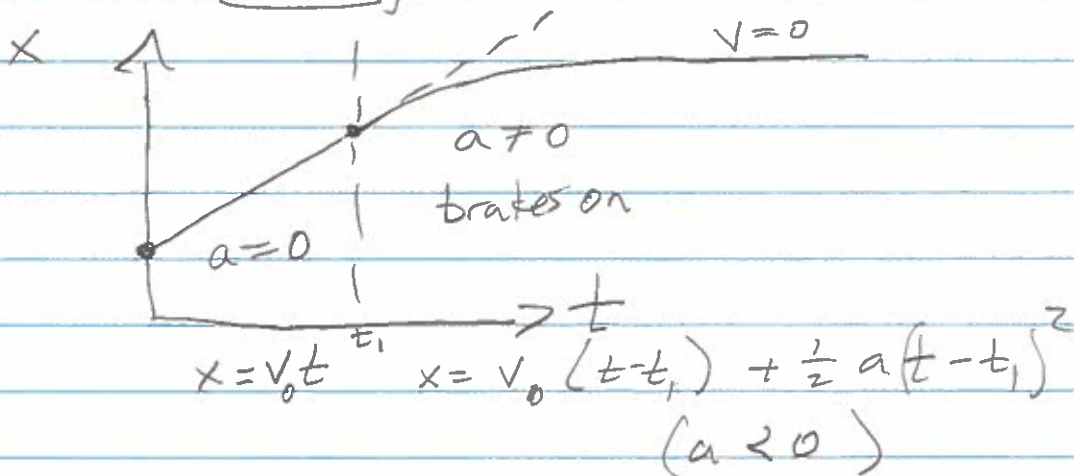 x
v=0
a ≠ 0
brakes on
a=0
t
t₁
x = v₀t x = v₀ (t-t₁) + ½ a(t-t₁)²
(a < 0)